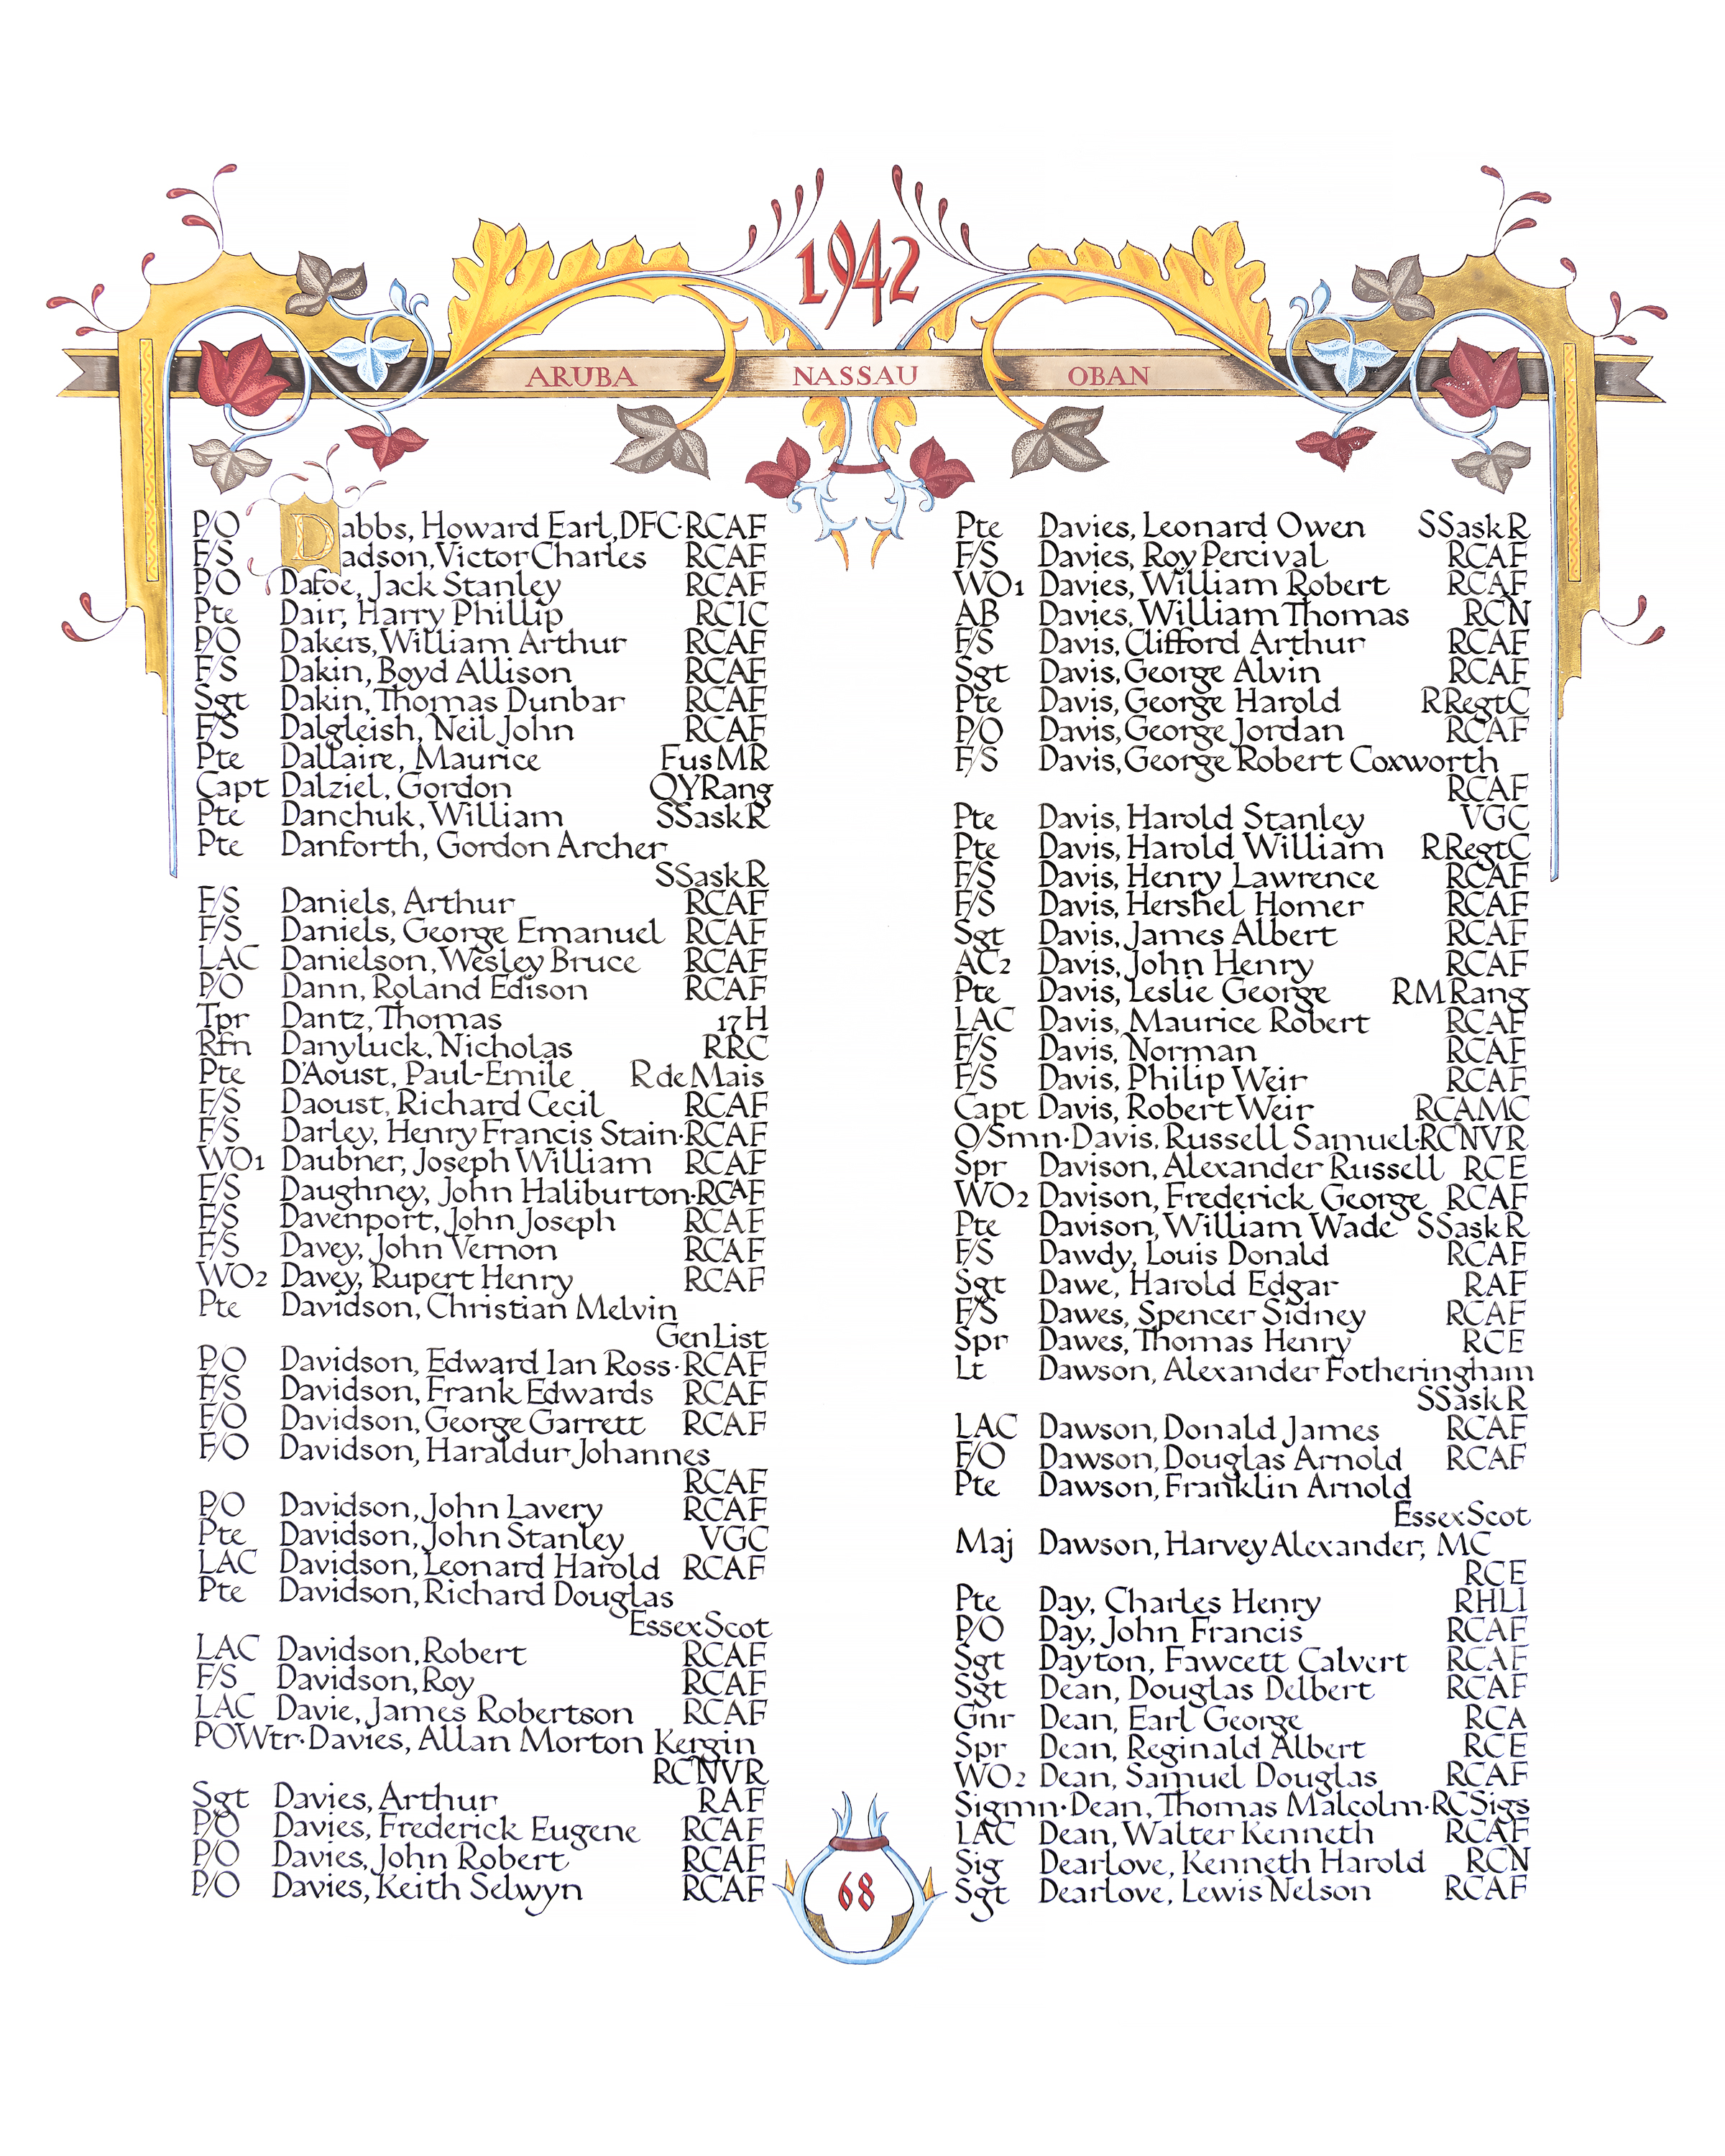 1942
ARUBA NASSAU OBAN
P/O Dabbs, Howard Earl, DFC·RCAF
F/S Dadson, Victor Charles RCAF
P/O Dafoe, Jack Stanley RCAF
Pte Dair, Harry Phillip RCIC
P/O Dakers, William Arthur RCAF
F/S Dakin, Boyd Allison RCAF
Sgt Dakin, Thomas Dunbar RCAF
F/S Dalgleish, Neil John RCAF
Pte Dallaire, Maurice FusMR
Capt Dalziel, Gordon QYRang
Pte Danchuk, William SSaskR
Pte Danforth, Gordon Archer
SSaskR
F/S Daniels, Arthur RCAF
F/S Daniels, George Emanuel RCAF
LAC Danielson, Wesley Bruce RCAF
P/O Dann, Roland Edison RCAF
Tpr Dantz, Thomas 17H
Rfn Danyluck, Nicholas RRC
Pte D'Aoust, Paul-Emile RdeMais
F/S Daoust, Richard Cecil RCAF
F/S Darley, Henry Francis Stain·RCAF
WO1 Daubner, Joseph William RCAF
F/S Daughney, John Haliburton·RCAF
F/S Davenport, John Joseph RCAF
F/S Davey, John Vernon RCAF
WO2 Davey, Rupert Henry RCAF
Pte Davidson, Christian Melvin
GenList
P/O Davidson, Edward Ian Ross·RCAF
F/S Davidson, Frank Edwards RCAF
F/O Davidson, George Garrett RCAF
F/O Davidson, Haraldur Johannes
RCAF
P/O Davidson, John Lavery RCAF
Pte Davidson, John Stanley VGC
LAC Davidson, Leonard Harold RCAF
Pte Davidson, Richard Douglas
EssexScot
LAC Davidson, Robert RCAF
F/S Davidson, Roy RCAF
LAC Davie, James Robertson RCAF
POWtr·Davies, Allan Morton Kergin
RCNVR
Sgt Davies, Arthur RAF
P/O Davies, Frederick Eugene RCAF
P/O Davies, John Robert RCAF
P/O Davies, Keith Selwyn RCAF
Pte Davies, Leonard Owen SSaskR
F/S Davies, Roy Percival RCAF
WO1 Davies, William Robert RCAF
AB Davies, William Thomas RCN
F/S Davis, Clifford Arthur RCAF
Sgt Davis, George Alvin RCAF
Pte Davis, George Harold RRegtC
P/O Davis, George Jordan RCAF
F/S Davis, George Robert Coxworth
RCAF
Pte Davis, Harold Stanley VGC
Pte Davis, Harold William RRegtC
F/S Davis, Henry Lawrence RCAF
F/S Davis, Hershel Homer RCAF
Sgt Davis, James Albert RCAF
AC2 Davis, John Henry RCAF
Pte Davis, Leslie George RMRang
LAC Davis, Maurice Robert RCAF
F/S Davis, Norman RCAF
F/S Davis, Philip Weir RCAF
Capt Davis, Robert Weir RCAMC
O/Smn·Davis, Russell Samuel·RCNVR
Spr Davison, Alexander Russell RCE
WO2 Davison, Frederick George RCAF
Pte Davison, William Wade SSaskR
F/S Dawdy, Louis Donald RCAF
Sgt Dawe, Harold Edgar RAF
F/S Dawes, Spencer Sidney RCAF
Spr Dawes, Thomas Henry RCE
Lt Dawson, Alexander Fotheringham
SSaskR
LAC Dawson, Donald James RCAF
F/O Dawson, Douglas Arnold RCAF
Pte Dawson, Franklin Arnold
EssexScot
Maj Dawson, Harvey Alexander, MC
RCE
Pte Day, Charles Henry RHLI
P/O Day, John Francis RCAF
Sgt Dayton, Fawcett Calvert RCAF
Sgt Dean, Douglas Delbert RCAF
Gnr Dean, Earl George RCA
Spr Dean, Reginald Albert RCE
WO2 Dean, Samuel Douglas RCAF
Sigmn·Dean, Thomas Malcolm·RCSigs
LAC Dean, Walter Kenneth RCAF
Sig Dearlove, Kenneth Harold RCN
Sgt Dearlove, Lewis Nelson RCAF
68